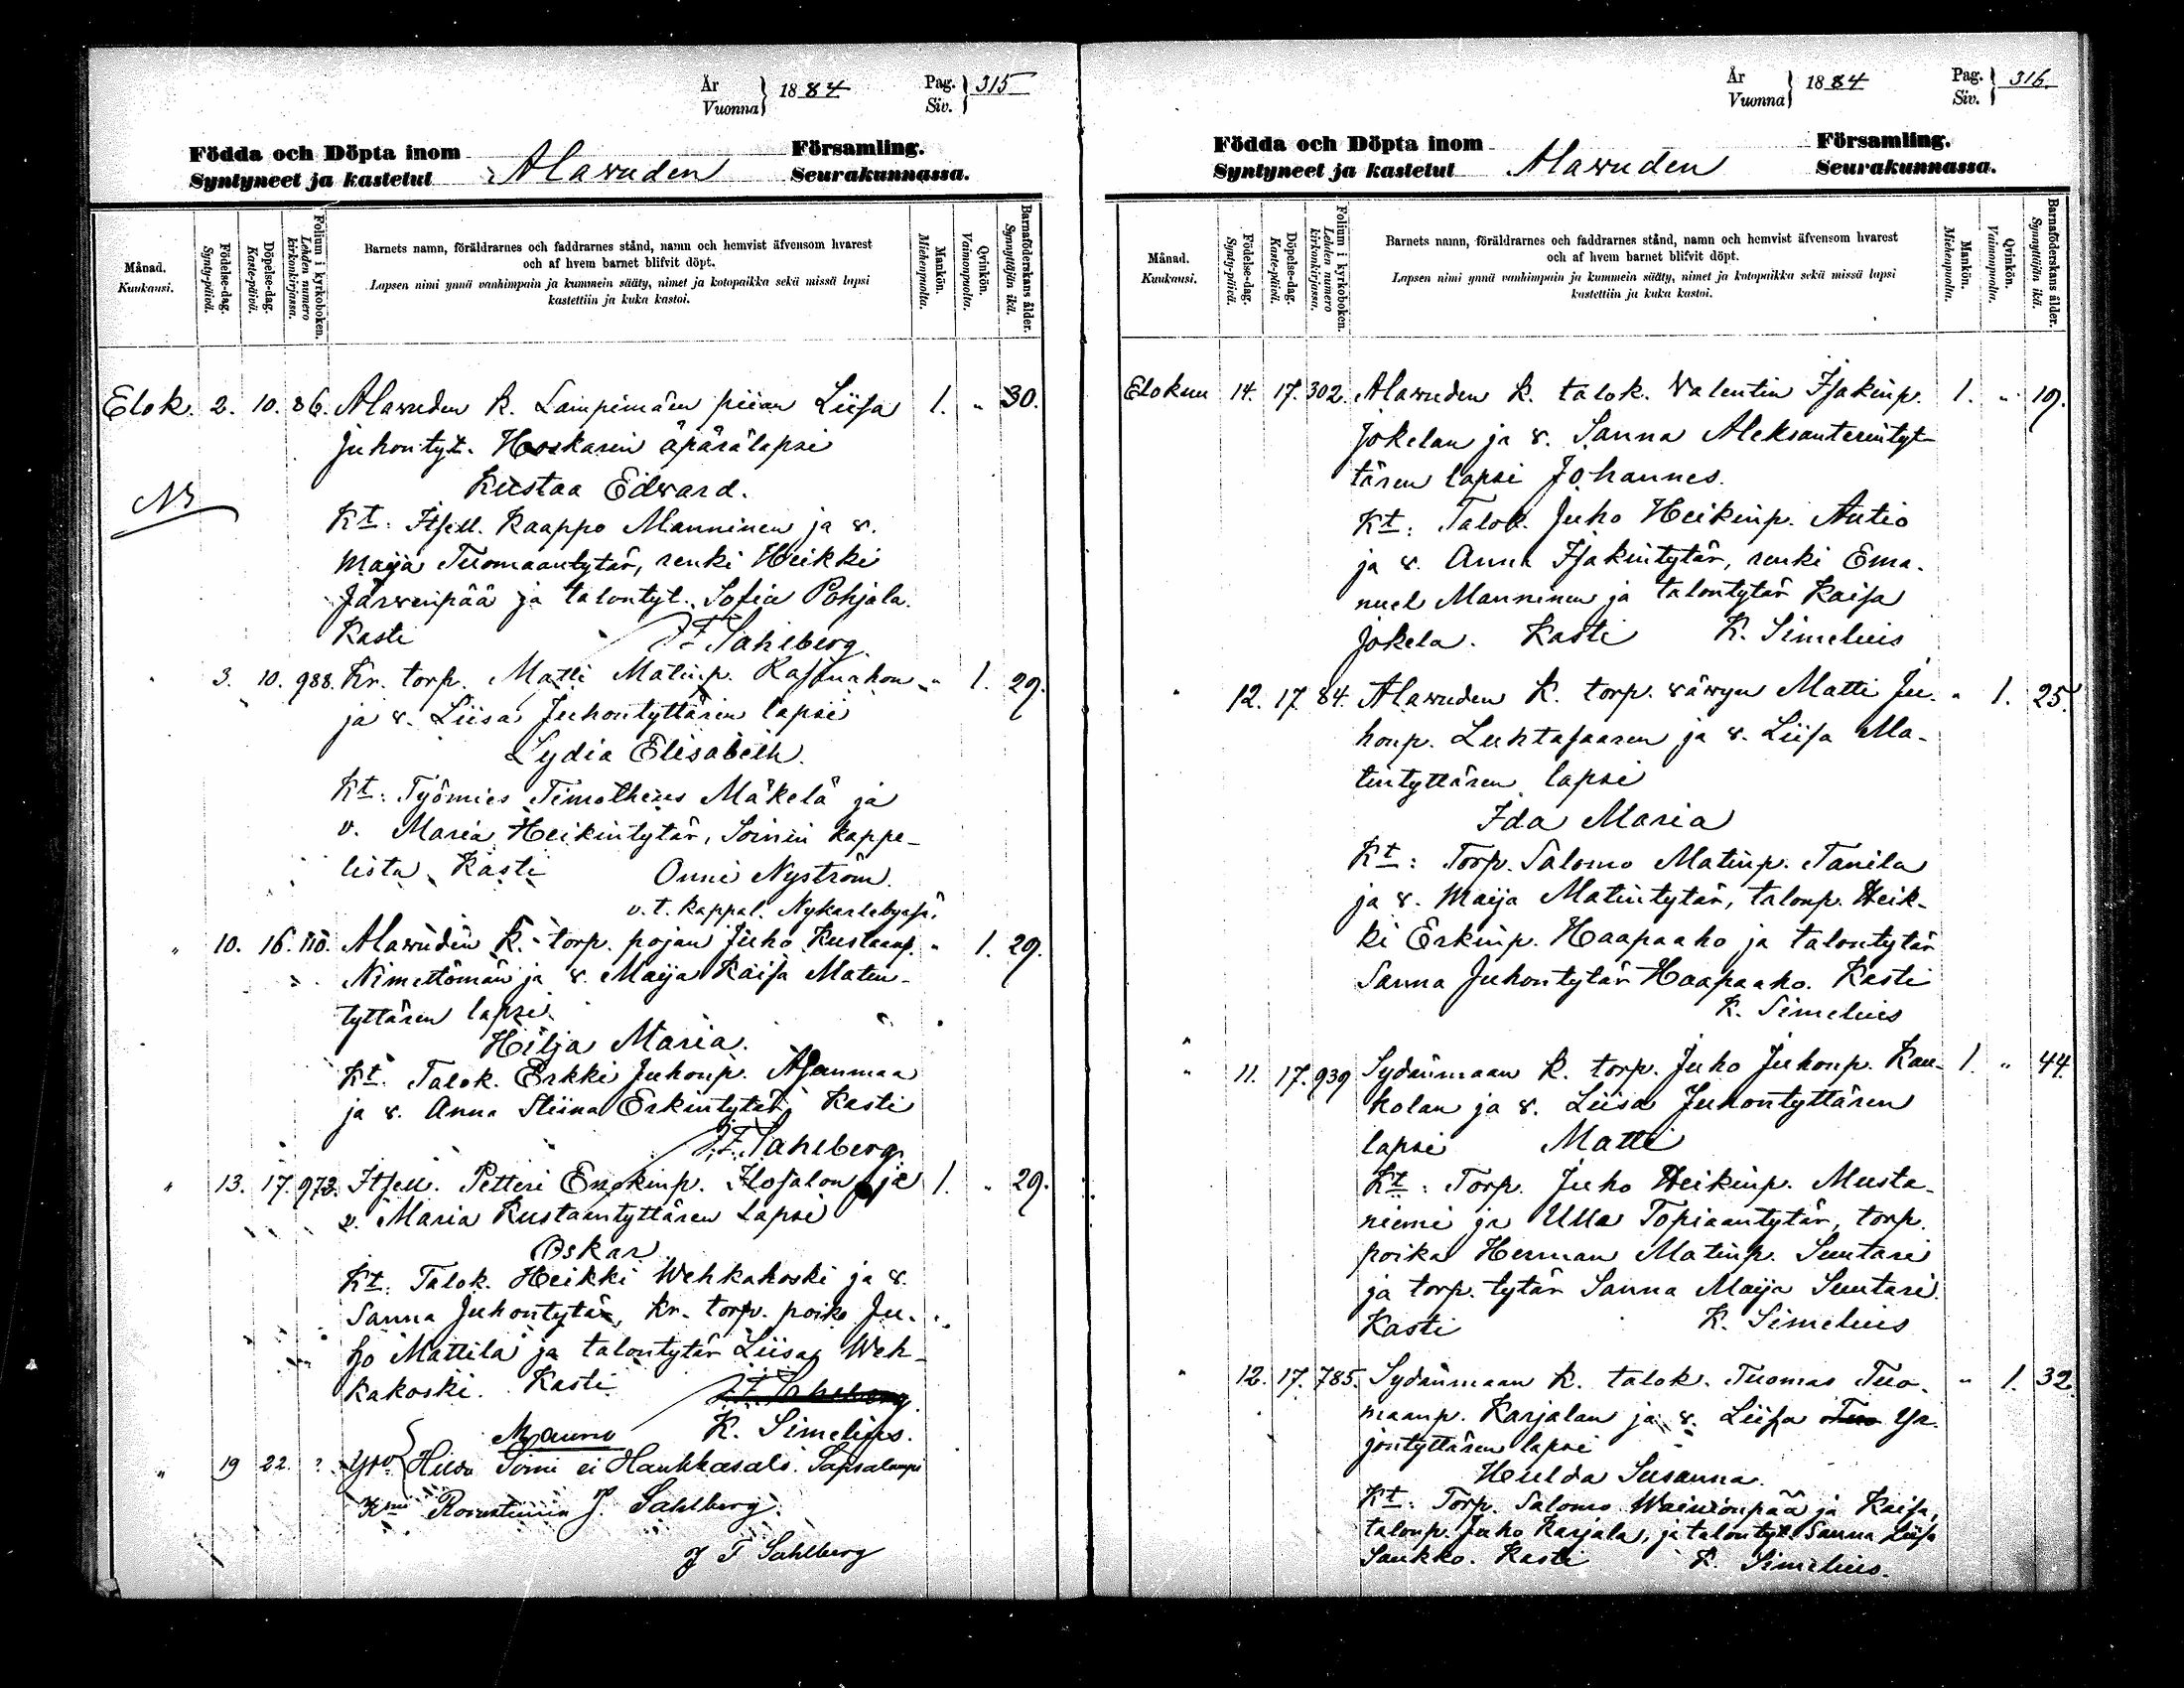 År
Vuonna
1884
Pag.
Siv.
315
Födda och Döpta inom Församling.
Syntyneet ja kastetut Alavuden Seurakunnassa.
Månad.
Kuukausi.
Födelse-dag.
Synty-päivä.
Döpelse-dag.
Kaste-päivä.
Folium i kyrkoboken.
Lehden numero kirkonkirjassa.
Barnets namn, föräldrarnes och faddrarnes stånd, namn och hemvist äfvensom hvarest
och af hvem barnet blifvit döpt.
Lapsen nimi ynnä vanhimpain ja kummein sääty, nimet ja kotopaikka sekä missä lapsi
kastettiin ja kuka kastoi.
Mankön.
Miehenpuolta.
Qvinkön.
Vaimonpuolta.
Barnaföderskans ålder.
Synnyttäjän ikä.
Elok. 2. 10. 86. Alavuden k. Lampimäen piian Liisa 1. " 30.
Juhontyt. Hoskarin äpärälapsi
Kustaa Edvard.
Kt: Itsell. Kaappo Manninen ja v.
Maija Tuomaantytär, renki Heikki
Järvenpää ja talontyt. Sofia Pohjala.
Kasti J F Sahlberg.
" 3. 10. 988. Kr. torp. Matti Matinp. Rassinahon " 1. 29.
ja v. Liisa Juhontyttären lapsi
Lydia Elisabeth.
Kt: Työmies Timotheus Mäkelä ja
v. Maria Heikintytär, Soinin kappe-
lista. Kasti Onni Nyström.
v. t. kappal. Nykarlebyssä.
" 10. 16. 110. Alavuden k. torp. pojan Juho Kustaanp. " 1. 29.
Nimettömän ja v. Maija Kaisa Matin-
tyttären lapsi
Hilja Maria.
Kt. Talok. Erkki Juhonp. Asunmaa
ja v. Anna Stiina Erkintytär. Kasti
J. F. Sahlberg.
" 13. 17. 973. Itsell. Petteri Enokinp. Ilosalon ja 1. " 29.
v. Maria Kustaantyttären lapsi
Oskar
Kt: Talok. Heikki Wehkakoski ja v.
Sanna Juhontytär, kr. torp. poika Ju-
ho Mattila ja talontytär Liisa Weh-
kakoski. Kasti J. F. Sahlberg
Mauno K. Simelius.
" 19 22. ? Hilda Soini ei Haukkasalo.
J. Sahlberg.
J F Sahlberg
År
Vuonna
1884
Pag.
Siv.
316.
Födda och Döpta inom Församling.
Syntyneet ja kastetut Alavuden Seurakunnassa.
Månad.
Kuukausi.
Födelse-dag.
Synty-päivä.
Döpelse-dag.
Kaste-päivä.
Folium i kyrkoboken.
Lehden numero kirkonkirjassa.
Barnets namn, föräldrarnes och faddrarnes stånd, namn och hemvist äfvensom hvarest
och af hvem barnet blifvit döpt.
Lapsen nimi ynnä vanhimpain ja kummein sääty, nimet ja kotopaikka sekä missä lapsi
kastettiin ja kuka kastoi.
Mankön.
Miehenpuolta.
Qvinkön.
Vaimonpuolta.
Barnaföderskans ålder.
Synnyttäjän ikä.
Elokuu 14. 17. 302. Alavuden k. talok. Valentin Isakinp. 1. " 19.
Jokelan ja v. Sanna Aleksanterintyt-
tären lapsi Johannes.
Kt: Talok. Juho Heikinp. Autio
ja v. Anna Isakintytär, renki Ema-
nuel Manninen ja talontytär Kaisa
Jokela. Kasti K. Simelius
" 12. 17. 84. Alavuden k. torp. vävyn Matti Ju- " 1. 25.
honp. Luhtasaaren ja v. Liisa Ma-
tintyttären lapsi
Ida Maria
Kt: Torp. Salomo Matinp. Tanila
ja v. Maija Matintytär, talonp. Heik-
ki Erkinp. Haapaaho ja talontytär
Sanna Juhontytär Haapaaho. Kasti
K. Simelius
" 11. 17. 939 Sydänmaan k. torp. Juho Juhonp. Kau- 1. " 44.
kolan ja v. Liisa Juhontyttären
lapsi Matti
Kt: Torp. Juho Heikinp. Musta-
niemi ja Ulla Topiaantytär, torp.
poika Herman Matinp. Suutari
ja torp. tytär Sanna Maija Suutari.
Kasti K. Simelius
" 12. 17. 785. Sydänmaan k. talok. Tuomas Tuo- " 1. 32.
maanp. Karjalan ja v. Liisa Tuo Yr-
jöntyttären lapsi
Hulda Susanna.
Kt: Torp. Salomo Wainionpää ja Kaisa,
talonp. Juho Karjala, ja talontyt. Sanna Liisa
Saukko. Kasti K. Simelius.